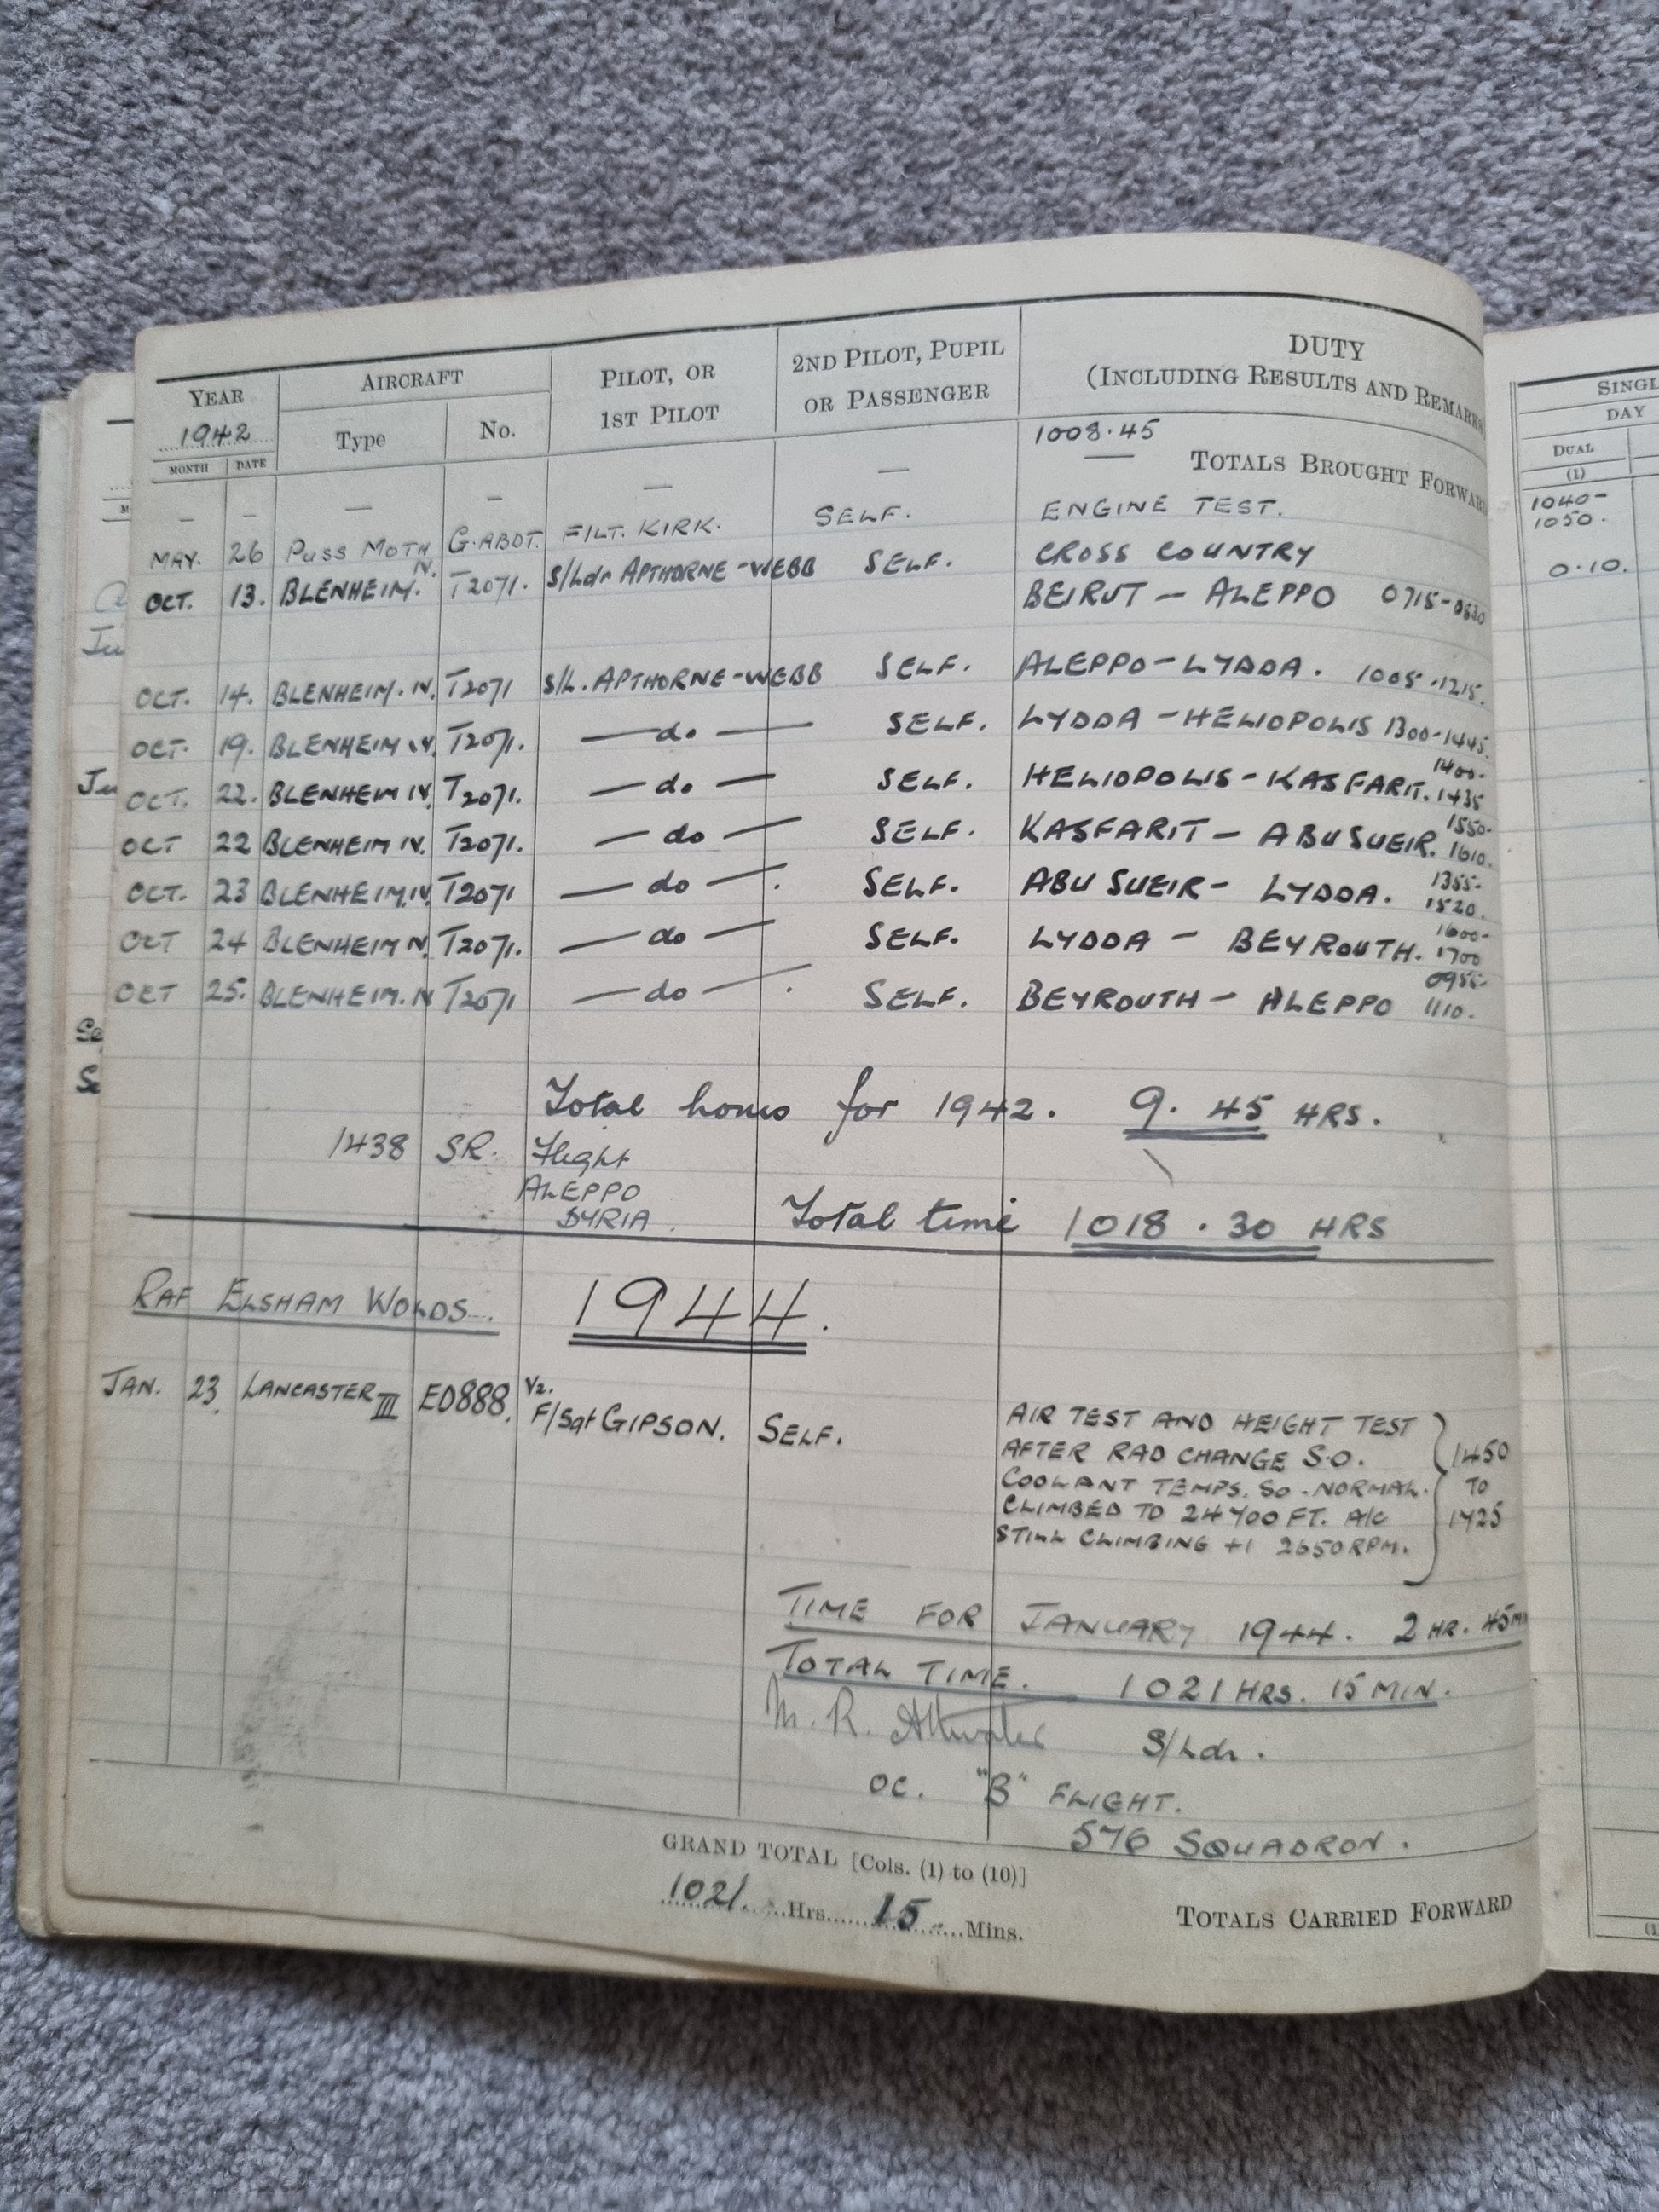 YEAR AIRCRAFT PILOT, OR 2ND PILOT, PUPIL DUTY
1942 Type No. 1ST PILOT OR PASSENGER (INCLUDING RESULTS AND REMARKS)
MONTH DATE
1008.45
— — — — — — TOTALS BROUGHT FORWARD
MAY. 26 PUSS MOTH G.ABDT. F/LT. KIRK. SELF. ENGINE TEST.
OCT. 13. BLENHEIM. IV. T2071. S/Ldr APTHORNE-WEBB SELF. CROSS COUNTRY
BEIRUT — ALEPPO 0715-0830
OCT. 14. BLENHEIM. IV. T2071 S/L. APTHORNE-WEBB SELF. ALEPPO-LYDDA. 1005-1215.
OCT. 19. BLENHEIM IV. T2071. — do — SELF. LYDDA - HELIOPOLIS 1300-1445.
OCT. 22. BLENHEIM IV. T2071. — do — SELF. HELIOPOLIS - KASFARIT. 1400-1435
OCT 22 BLENHEIM IV. T2071. — do — SELF. KASFARIT — ABU SUEIR. 1550-1610.
OCT. 23 BLENHEIM.IV. T2071 — do — . SELF. ABU SUEIR - LYDDA. 1355-1520.
OCT 24 BLENHEIM IV. T2071. — do — SELF. LYDDA - BEYROUTH. 1600-1700
OCT 25. BLENHEIM. IV T2071 — do — . SELF. BEYROUTH - ALEPPO 0955-1110.
Total hours for 1942. 9.45 HRS.
1438 SR. Flight
ALEPPO
SYRIA.
Total time 1018.30 HRS
RAF ELSHAM WOLDS. 1944.
JAN. 23. LANCASTER III ED888. V2. F/Sgt GIPSON. SELF.
AIR TEST AND HEIGHT TEST
AFTER RAD CHANGE S.O. 1450
COOLANT TEMPS. SO. NORMAL. TO
CLIMBED TO 24700 FT. A/C 1725
STILL CLIMBING +1 2650 RPM.
TIME FOR JANUARY 1944. 2 HR. 45 MIN
TOTAL TIME. 1021 HRS. 15 MIN.
M. R. Attwater S/Ldr.
OC. "B" FLIGHT.
576 SQUADRON.
GRAND TOTAL [Cols. (1) to (10)]
1021. Hrs. 15 Mins.
TOTALS CARRIED FORWARD
SINGL
DAY
DUAL
(1)
1040-
1050.
0.10.